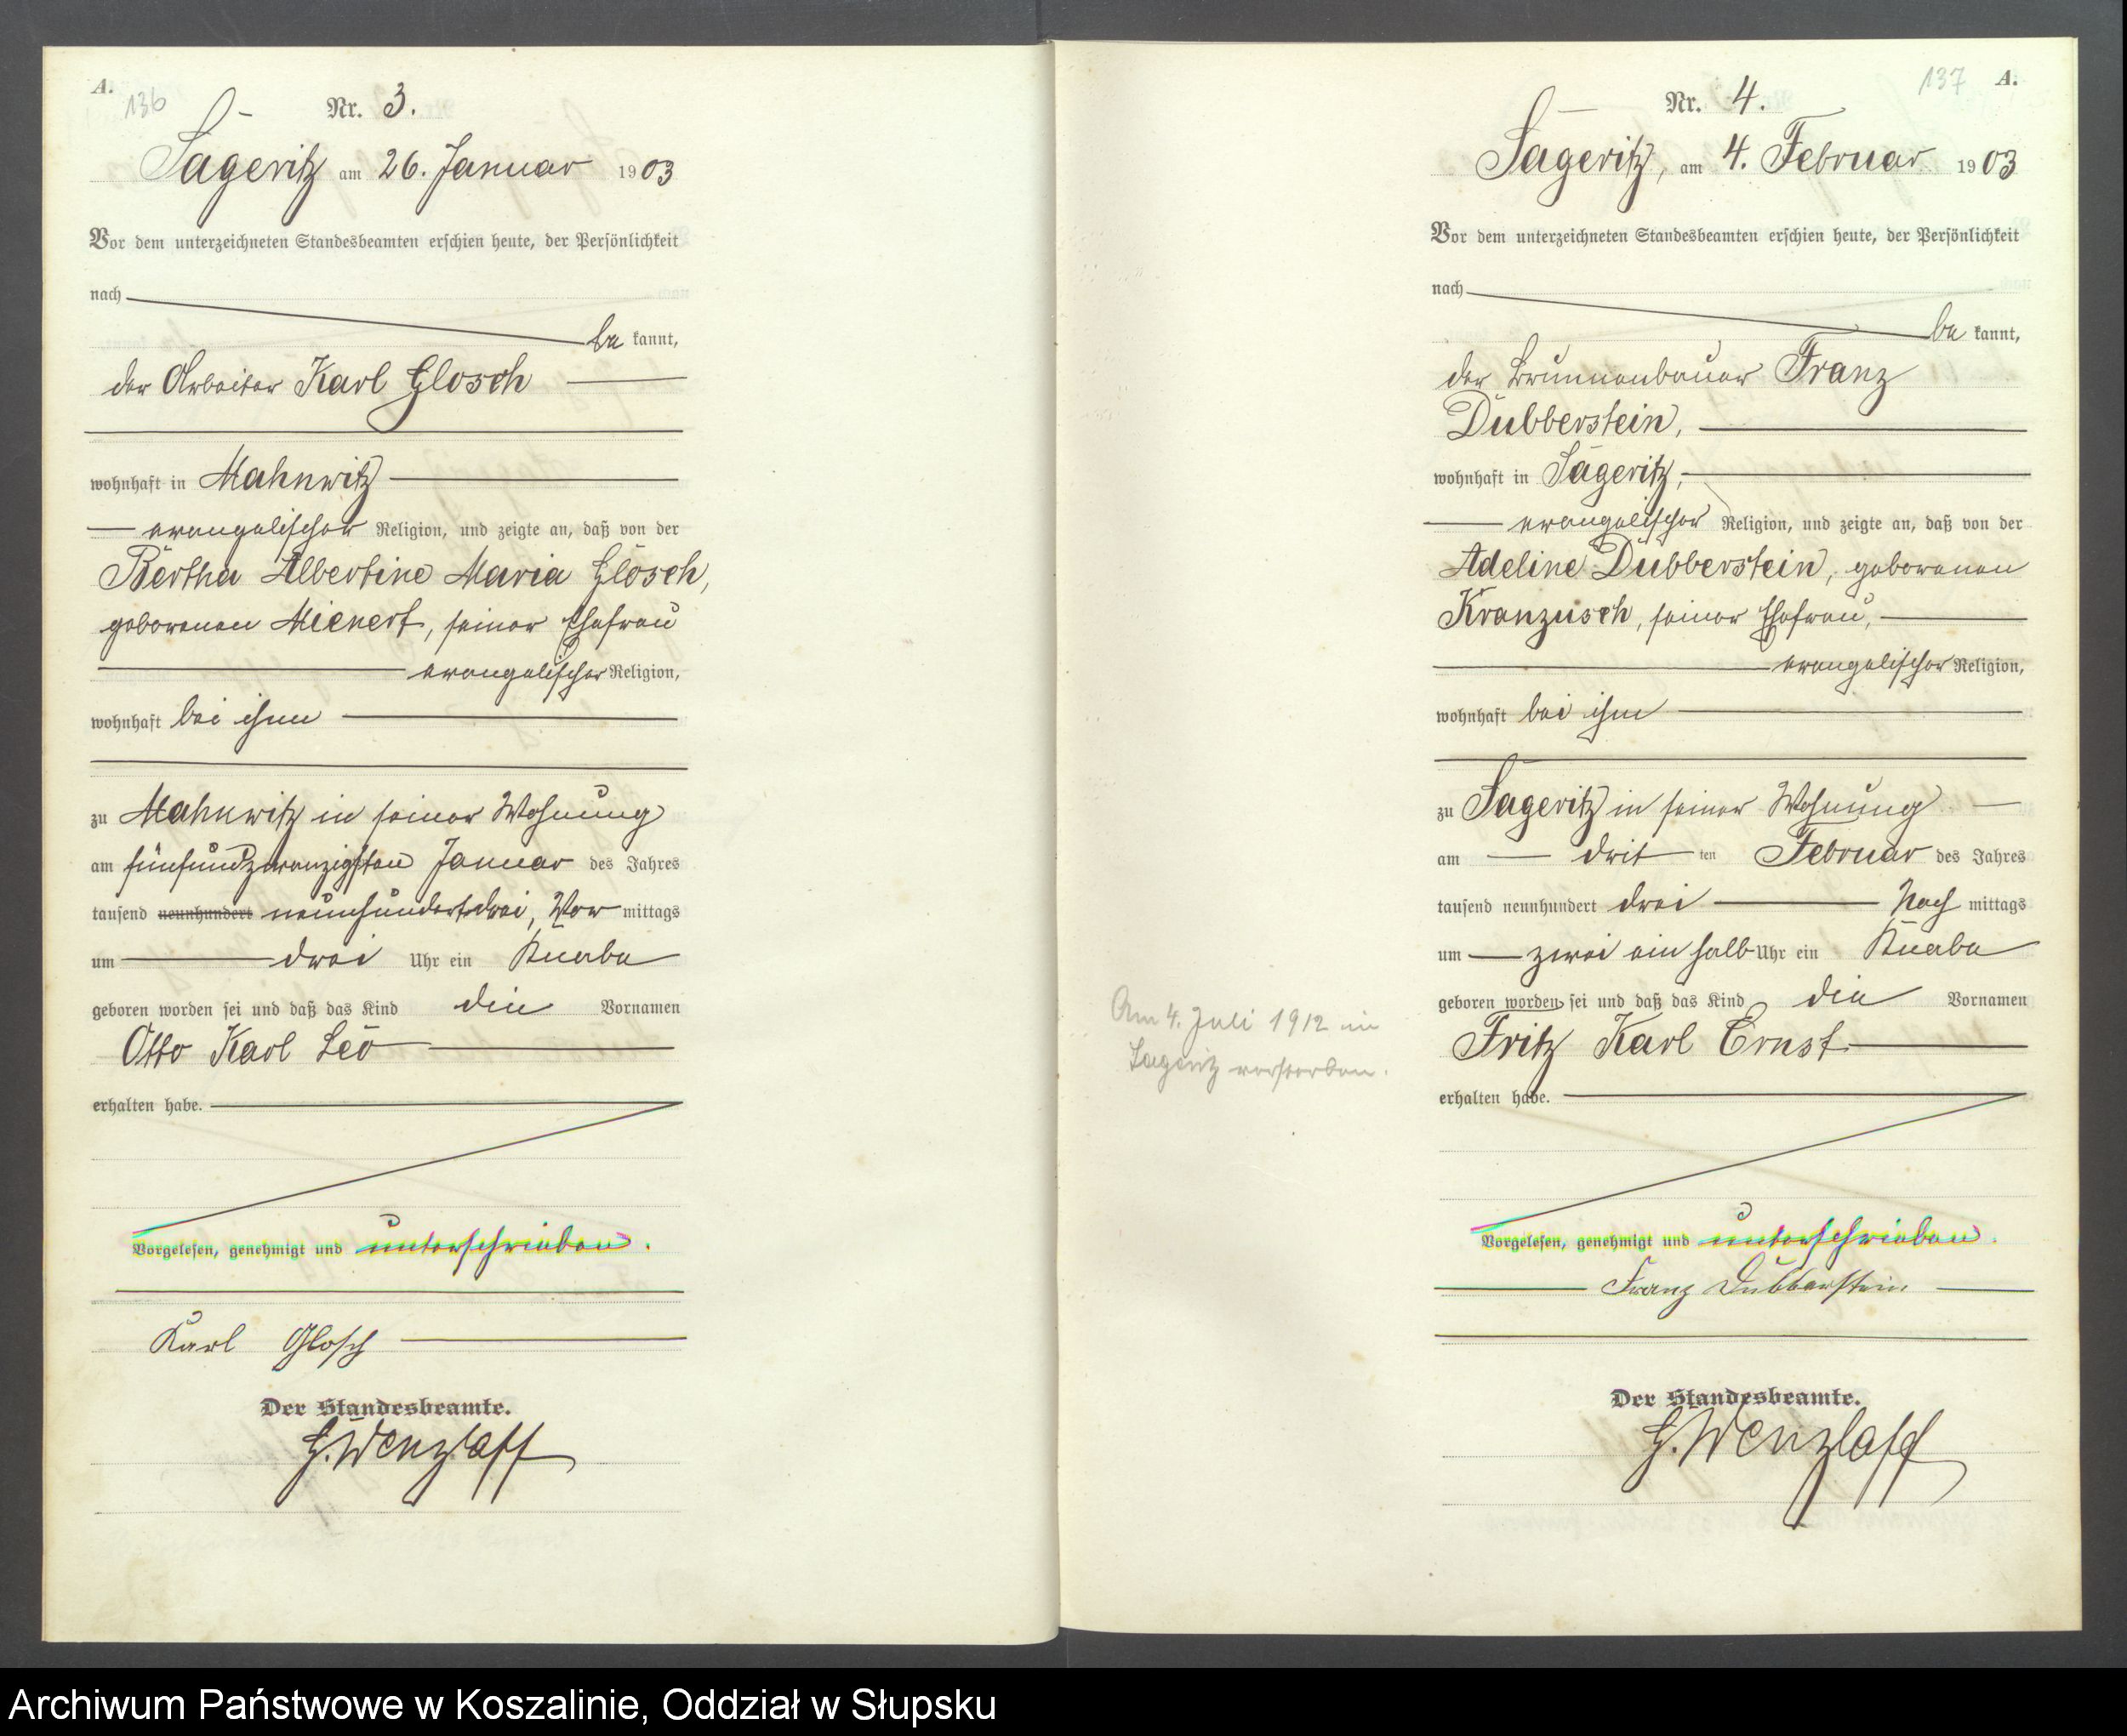 A.
136
Nr. 3.
Sageritz am 26. Januar 1903
Vor dem unterzeichneten Standesbeamten erschien heute, der Persönlichkeit
nach
be kannt,
der Arbeiter Karl Glosch
wohnhaft in Mahnwitz
evangelischer Religion, und zeigte an, daß von der
Bertha Albertine Maria Glosch,
geborenen Mienert, seiner Ehefrau
evangelischer Religion,
wohnhaft bei ihm
zu Mahnwitz in seiner Wohnung
am fünfundzwanzigsten Januar des Jahres
tausend neunhundert neunhundertdrei, Vor mittags
um drei Uhr ein Knabe
geboren worden sei und daß das Kind die Vornamen
Otto Karl Leo
erhalten habe.
Vorgelesen, genehmigt und unterschrieben.
Karl Glosch
Der Standesbeamte.
G. Wenzlaff
137
A.
Nr. 4.
Sageritz, am 4. Februar 1903
Vor dem unterzeichneten Standesbeamten erschien heute, der Persönlichkeit
nach
be kannt,
der Brunnenbauer Franz
Dubberstein,
wohnhaft in Sageritz,
evangelischer Religion, und zeigte an, daß von der
Adeline Dubberstein, geborenen
Kranzusch, seiner Ehefrau,
evangelischer Religion,
wohnhaft bei ihm
zu Sageritz in seiner Wohnung
am drit ten Februar des Jahres
tausend neunhundert drei Nach mittags
um zwei ein halb Uhr ein Knabe
geboren worden sei und daß das Kind die Vornamen
Fritz Karl Ernst
erhalten habe.
Am 4. Juli 1912 in
Sageritz verstorben.
Vorgelesen, genehmigt und unterschrieben.
Franz Dubberstein
Der Standesbeamte.
G. Wenzlaff
Archiwum Państwowe w Koszalinie, Oddział w Słupsku